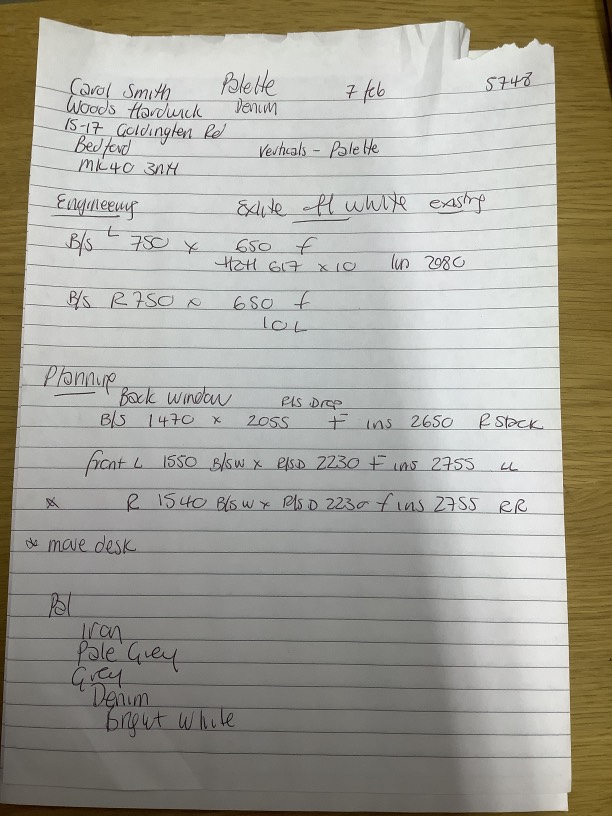 Carol Smith Palette 7 feb 5748
Woods Hardwick Denim
15-17 Goldington Rd
Bedford Verticals - Palette
MK40 3NH
Engineering white existing
B/s L 750 x 650 f
617 x 10 2080
B/s R 750 x 650 f
10 L
Planning
Back window R/s Drop
B/s 1470 x 2055 F ins 2650 R stack
front L 1550 B/sW x R/sD 2230 F ins 2755 LL
* R 1540 B/sW x R/sD 2230 f ins 2755 RR
* move desk
Pal
Iron
Pale Grey
Grey
Denim
Bright White